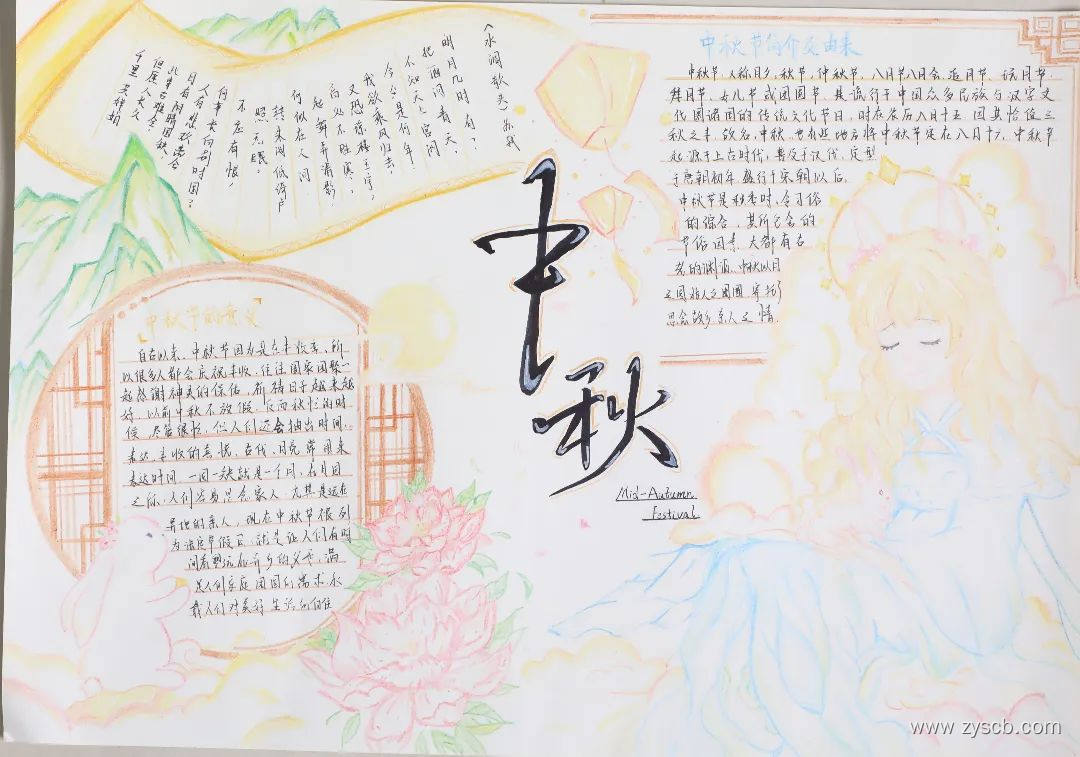 《水调歌头》 苏轼
明月几时有，
把酒问青天，
不知天上宫阙
今夕是何年
我欲乘风归去，
又恐琼楼玉宇，
高处不胜寒，
起舞弄清影
何似在人间
转朱阁低绮户
照无眠，
不应有恨，
何事长向别时圆？
人有悲欢离合
月有阴晴圆缺，
此事古难全，
但愿人长久
千里共婵娟
中秋节的介及由来
中秋节，又称月夕，秋节，仲秋节，八月节八月会，追月节，玩月节，
拜月节，女儿节或团圆节，其流行于中国众多民族与汉字文
化圈诸国的传统文化节日，时在农历八月十五 因其恰值三
秋之半，故名，中秋，也有些地方将中秋节定在八月十六，中秋节
起源于上古时代，普及于汉代，定型
于唐朝初年，盛行于宋朝以后，
中秋节是秋季时，令习俗
的综合，其所包含的
节俗因素，大都有古
老的渊源，中秋以月
之圆，指人之团圆 寄托了
思念故乡，亲人之情
中秋
Mid-Autumn
Festival
中秋节的意义
自古以来，中秋节因为是在丰收季，所
以很多人都会庆祝丰收，往往国家团聚一
起感谢神灵的保佑，祈祷日子越来越
好，以前中秋不放假，反而秋忙的时
候，尽管很忙，但人们还会抽出时间，
表达，丰收的喜悦，古代，月亮常用来
表达时间 一圆一缺就是一个月，在月圆
之际，人们容易思念家人，尤其是远在
异地的亲人，现在中秋节被列
为法定节假日，就是让人们有时
间看望远在异乡的父母，满
足人们家庭团圆的需求承
载人们对美好生活的向往
www.zyscb.com